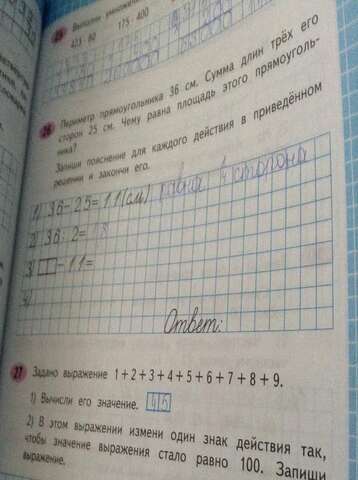 25 Выполни умножени
423 · 60 175 · 400
26 Периметр прямоугольника 36 см. Сумма длин трёх его
сторон 25 см. Чему равна площадь этого прямоуголь-
ника?
Запиши пояснение для каждого действия в приведённом
решении и закончи его.
1) 36-25=11(см) равна 4 сторона
2) 36:2=18
3) -11=
4)
Ответ:
27 Задано выражение 1+2+3+4+5+6+7+8+9.
1) Вычисли его значение. 45
2) В этом выражении измени один знак действия так,
чтобы значение выражения стало равно 100. Запиши
выражение.